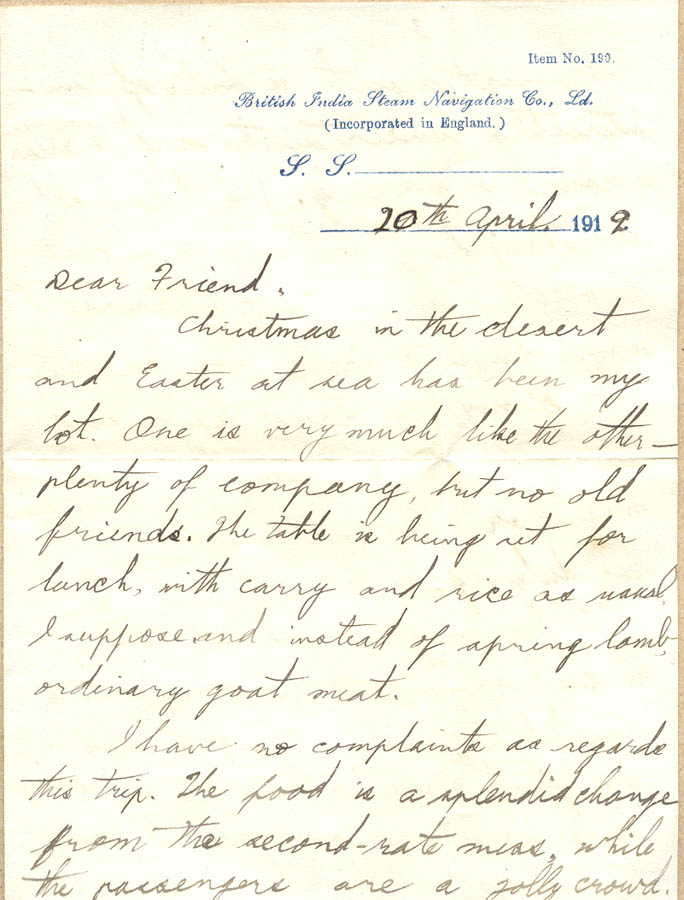 Item No. 190.
British India Steam Navigation Co., Ld.
(Incorporated in England.)
S. S.
20th April. 1919
Dear Friend,
Christmas in the desert
and Easter at sea has been my
lot. One is very much like the other—
plenty of company, but no old
friends. The table is being set for
lunch, with carry and rice as usual
I suppose and instead of spring lamb,
ordinary goat meat.
I have no complaints as regards
this trip. The food is a splendid change
from the second-rate mess, while
the passengers are a jolly crowd.